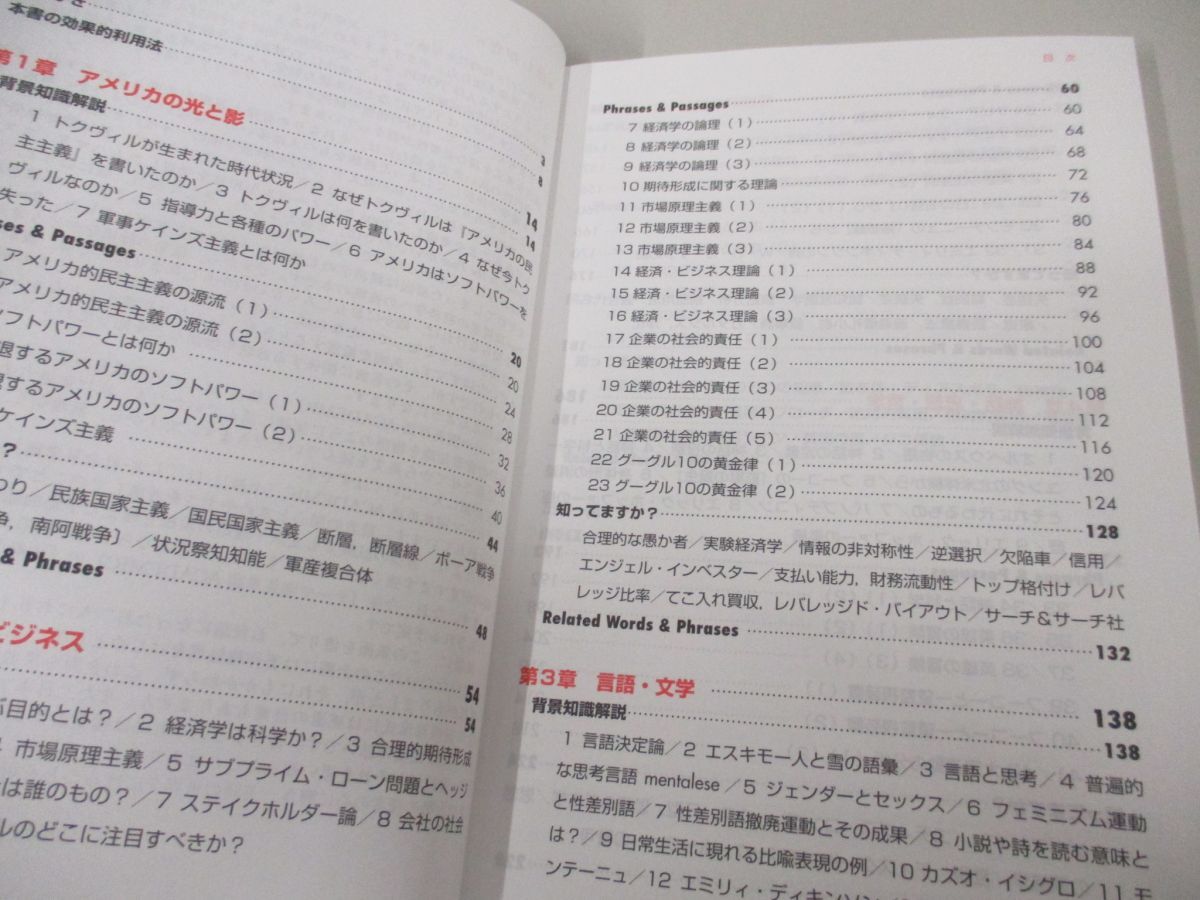 本書の効果的利用法
3
第1章 アメリカの光と影
8
背景知識解説
14
1 トクヴィルが生まれた時代状況／2 なぜトクヴィルは『アメリカの民
14
主主義』を書いたのか／3 トクヴィルは何を書いたのか／4 なぜ今トク
ヴィルなのか／5 指導力と各種のパワー／6 アメリカはソフトパワーを
失った／7 軍事ケインズ主義とは何か
ses & Passages
20
アメリカ的民主主義の源流（1）
20
アメリカ的民主主義の源流（2）
24
ソフトパワーとは何か
28
退するアメリカのソフトパワー（1）
32
退するアメリカのソフトパワー（2）
36
ケインズ主義
40
？
44
わり／民族国家主義／国民国家主義／断層，断層線／ボーア戦争
争，南阿戦争〕／状況察知知能／軍産複合体
& Phrases
48
ビジネス
54
54
ぶ目的とは？／2 経済学は科学か？／3 合理的期待形成
市場原理主義／5 サブプライム・ローン問題とヘッジ
は誰のもの？／7 ステイクホルダー論／8 会社の社会
ルのどこに注目すべきか？
目 次
Phrases & Passages 60
7 経済学の論理（1） 60
8 経済学の論理（2） 64
9 経済学の論理（3） 68
10 期待形成に関する理論 72
11 市場原理主義（1） 76
12 市場原理主義（2） 80
13 市場原理主義（3） 84
14 経済・ビジネス理論（1） 88
15 経済・ビジネス理論（2） 92
16 経済・ビジネス理論（3） 96
17 企業の社会的責任（1） 100
18 企業の社会的責任（2） 104
19 企業の社会的責任（3） 108
20 企業の社会的責任（4） 112
21 企業の社会的責任（5） 116
22 グーグル10の黄金律（1） 120
23 グーグル10の黄金律（2） 124
知ってますか？ 128
合理的な愚か者／実験経済学／情報の非対称性／逆選択／欠陥車／信用／
エンジェル・インベスター／支払い能力，財務流動性／トップ格付け／レバ
レッジ比率／てこ入れ買収，レバレッジド・バイアウト／サーチ＆サーチ社
Related Words & Phrases 132
第3章 言語・文学 138
背景知識解説 138
1 言語決定論／2 エスキモー人と雪の語彙／3 言語と思考／4 普遍的
な思考言語 mentalese／5 ジェンダーとセックス／6 フェミニズム運動
と性差別語／7 性差別語撤廃運動とその成果／8 小説や詩を読む意味と
は？／9 日常生活に現れる比喩表現の例／10 カズオ・イシグロ／11 モ
ンテーニュ／12 エミリィ・ディキンソン